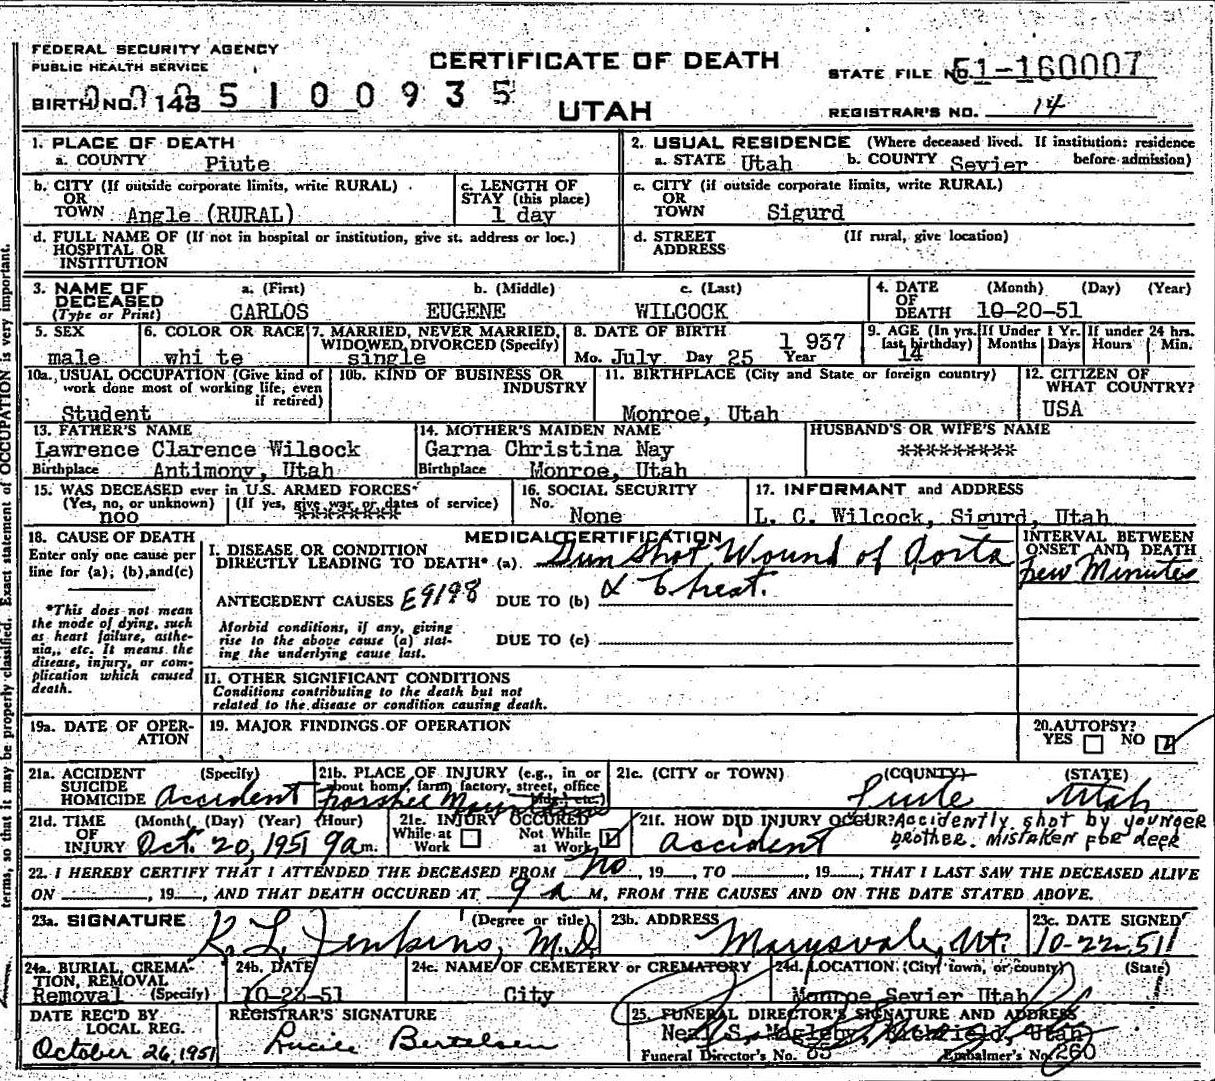 FEDERAL SECURITY AGENCY
PUBLIC HEALTH SERVICE
CERTIFICATE OF DEATH
UTAH
STATE FILE NO. 51-160007
BIRTH NO. 143 5100935
REGISTRAR'S NO. 14
1. PLACE OF DEATH
a. COUNTY Piute
2. USUAL RESIDENCE (Where deceased lived. If institution: residence before admission)
a. STATE Utah b. COUNTY Sevier
b. CITY (If outside corporate limits, write RURAL) OR TOWN Angle (RURAL)
c. LENGTH OF STAY (this place) 1 day
c. CITY (if outside corporate limits, write RURAL) OR TOWN Sigurd
d. FULL NAME OF (If not in hospital or institution, give st. address or loc.) HOSPITAL OR INSTITUTION
d. STREET ADDRESS (If rural, give location)
3. NAME OF DECEASED (Type or Print)
a. (First) CARLOS b. (Middle) EUGENE c. (Last) WILCOCK
4. DATE OF DEATH (Month) (Day) (Year) 10-20-51
5. SEX male
6. COLOR OR RACE whi te
7. MARRIED, NEVER MARRIED, WIDOWED, DIVORCED (Specify) single
8. DATE OF BIRTH Mo. July Day 25 Year 1 937
9. AGE (In yrs. last birthday) 14
If Under 1 Yr. Months Days
If under 24 hrs. Hours Min.
10a. USUAL OCCUPATION (Give kind of work done most of working life, even if retired) Student
10b. KIND OF BUSINESS OR INDUSTRY
11. BIRTHPLACE (City and State or foreign country) Monroe, Utah
12. CITIZEN OF WHAT COUNTRY? USA
13. FATHER'S NAME Lawrence Clarence Wilcock
Birthplace Antimony, Utah
14. MOTHER'S MAIDEN NAME Garna Christina Nay
Birthplace Monroe, Utah
HUSBAND'S OR WIFE'S NAME *********
15. WAS DECEASED ever in U.S. ARMED FORCES (Yes, no, or unknown) noo (If yes, give war or dates of service)
16. SOCIAL SECURITY No. None
17. INFORMANT and ADDRESS L. C. Wilcock, Sigurd, Utah
18. CAUSE OF DEATH
Enter only one cause per line for (a), (b), and (c)
*This does not mean the mode of dying, such as heart failure, asthenia, etc. It means the disease, injury, or complication which caused death.
MEDICAL CERTIFICATION
I. DISEASE OR CONDITION DIRECTLY LEADING TO DEATH* (a) Gun Shot Wound of Aorta
INTERVAL BETWEEN ONSET AND DEATH few Minutes
& Chest.
ANTECEDENT CAUSES E9198 DUE TO (b)
Morbid conditions, if any, giving rise to the above cause (a) stating the underlying cause last.
DUE TO (c)
II. OTHER SIGNIFICANT CONDITIONS
Conditions contributing to the death but not related to the disease or condition causing death.
19a. DATE OF OPERATION
19. MAJOR FINDINGS OF OPERATION
20. AUTOPSY? YES NO
21a. ACCIDENT SUICIDE HOMICIDE (Specify) Accident
21b. PLACE OF INJURY (e.g., in or about home, farm, factory, street, office bldg., etc.) Mountains
21c. (CITY or TOWN) (COUNTY) Piute (STATE) Utah
21d. TIME OF INJURY (Month) (Day) (Year) (Hour) Oct. 20, 1951 9 a m.
21e. INJURY OCCURED While at Work Not While at Work
21f. HOW DID INJURY OCCUR? Accident Accidently shot by younger brother. Mistaken for deer
22. I HEREBY CERTIFY THAT I ATTENDED THE DECEASED FROM No, 19__, TO ____, 19__, THAT I LAST SAW THE DECEASED ALIVE
ON ____, 19__, AND THAT DEATH OCCURED AT 9 a M, FROM THE CAUSES AND ON THE DATE STATED ABOVE.
23a. SIGNATURE (Degree or title) R. L. Jenkins, M.D.
23b. ADDRESS Marysvale, Ut.
23c. DATE SIGNED 10-22-51
24a. BURIAL, CREMATION, REMOVAL (Specify) Removal
24b. DATE 10-23-51
24c. NAME OF CEMETERY or CREMATORY City
24d. LOCATION (City, town, or county) (State) Monroe Sevier Utah
DATE REC'D BY LOCAL REG. October 26, 1951
REGISTRAR'S SIGNATURE Lucile Bertelsen
25. FUNERAL DIRECTOR'S SIGNATURE AND ADDRESS
Neal S. Magleby, Richfield, Utah
Funeral Director's No. 85 Embalmer's No. 260
terms, so that it may be properly classified. Exact statement of OCCUPATION is very important.